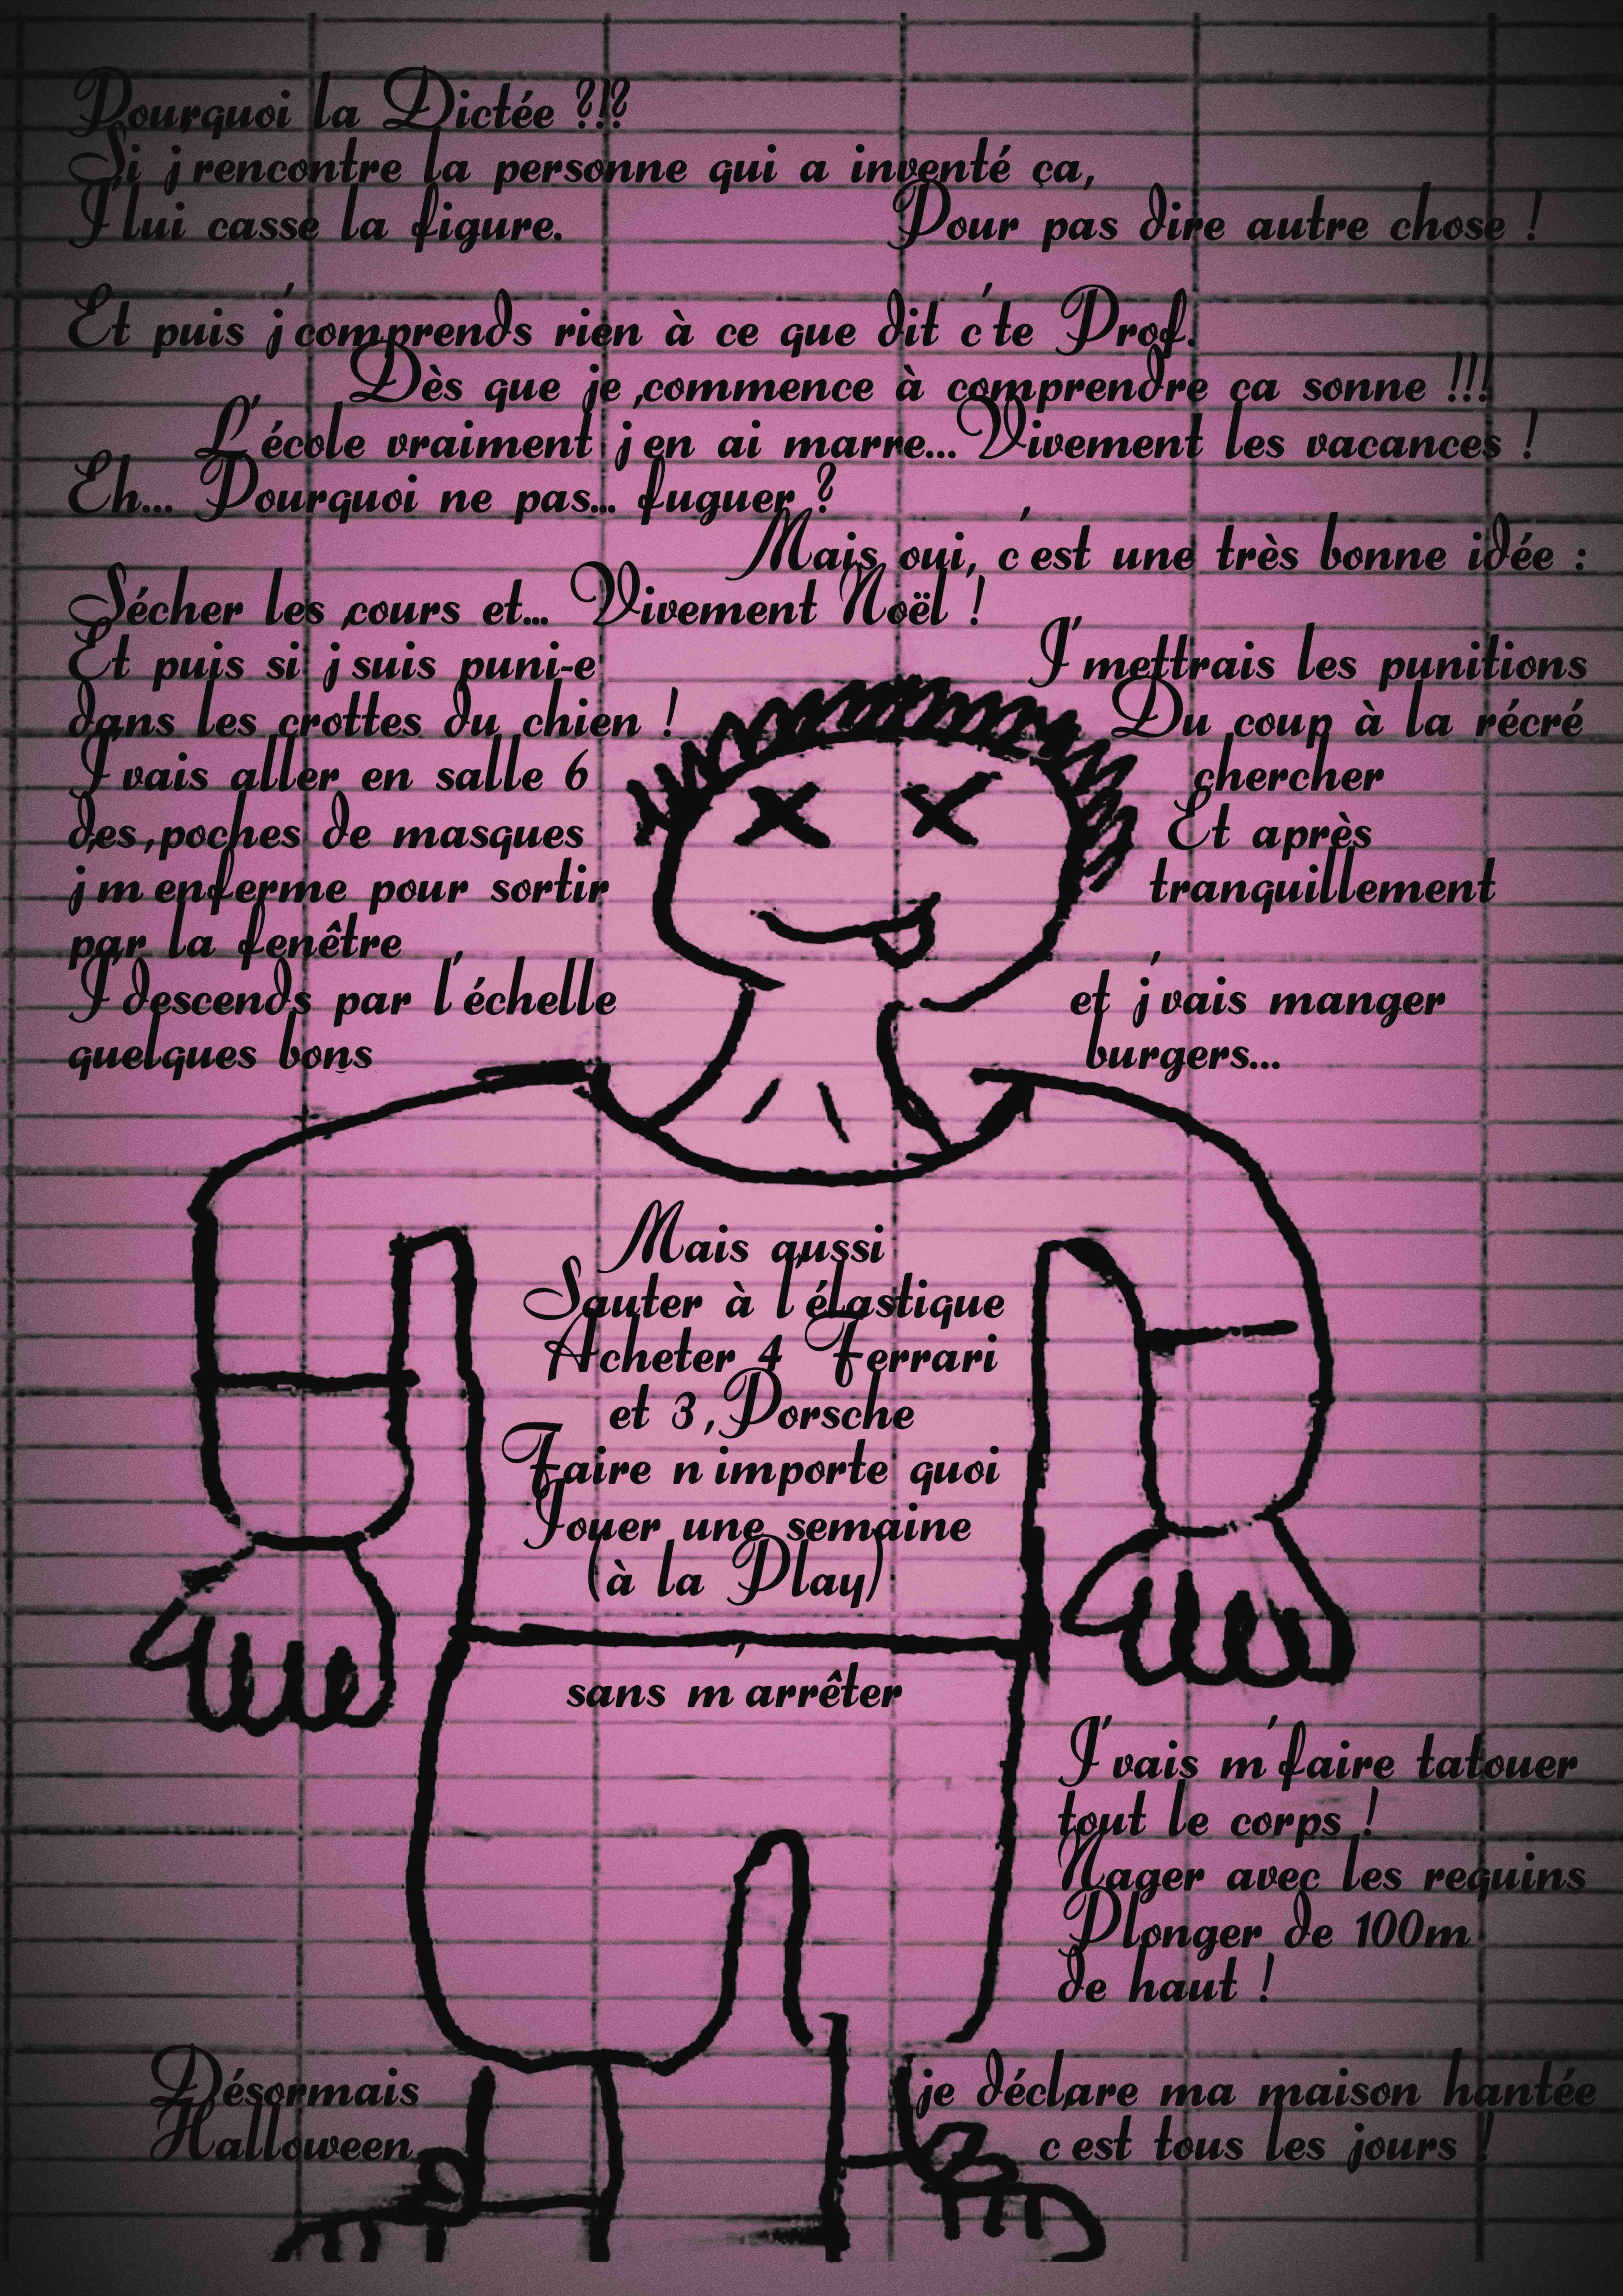 Pourquoi la Dictée ?!?
Si j'rencontre la personne qui a inventé ça,
J'lui casse la figure. Pour pas dire autre chose !
Et puis j'comprends rien à ce que dit c'te Prof.
Dès que je commence à comprendre ça sonne !!!
L'école vraiment j'en ai marre... Vivement les vacances !
Eh... Pourquoi ne pas... fuguer ?
Mais oui, c'est une très bonne idée :
Sécher les cours et... Vivement Noël !
Et puis si j'suis puni-e J'mettrais les punitions
dans les crottes du chien ! Du coup à la récré
J'vais aller en salle 6 chercher
des poches de masques Et après
j'm'enferme pour sortir tranquillement
par la fenêtre
J'descends par l'échelle et j'vais manger
quelques bons burgers...
Mais aussi
Sauter à l'élastique
Acheter 4 Ferrari
et 3 Porsche
Faire n'importe quoi
Jouer une semaine
(à la Play)
sans m'arrêter
J'vais m'faire tatouer
tout le corps !
Nager avec les requins
Plonger de 100m
de haut !
Désormais je déclare ma maison hantée
Halloween c'est tous les jours !